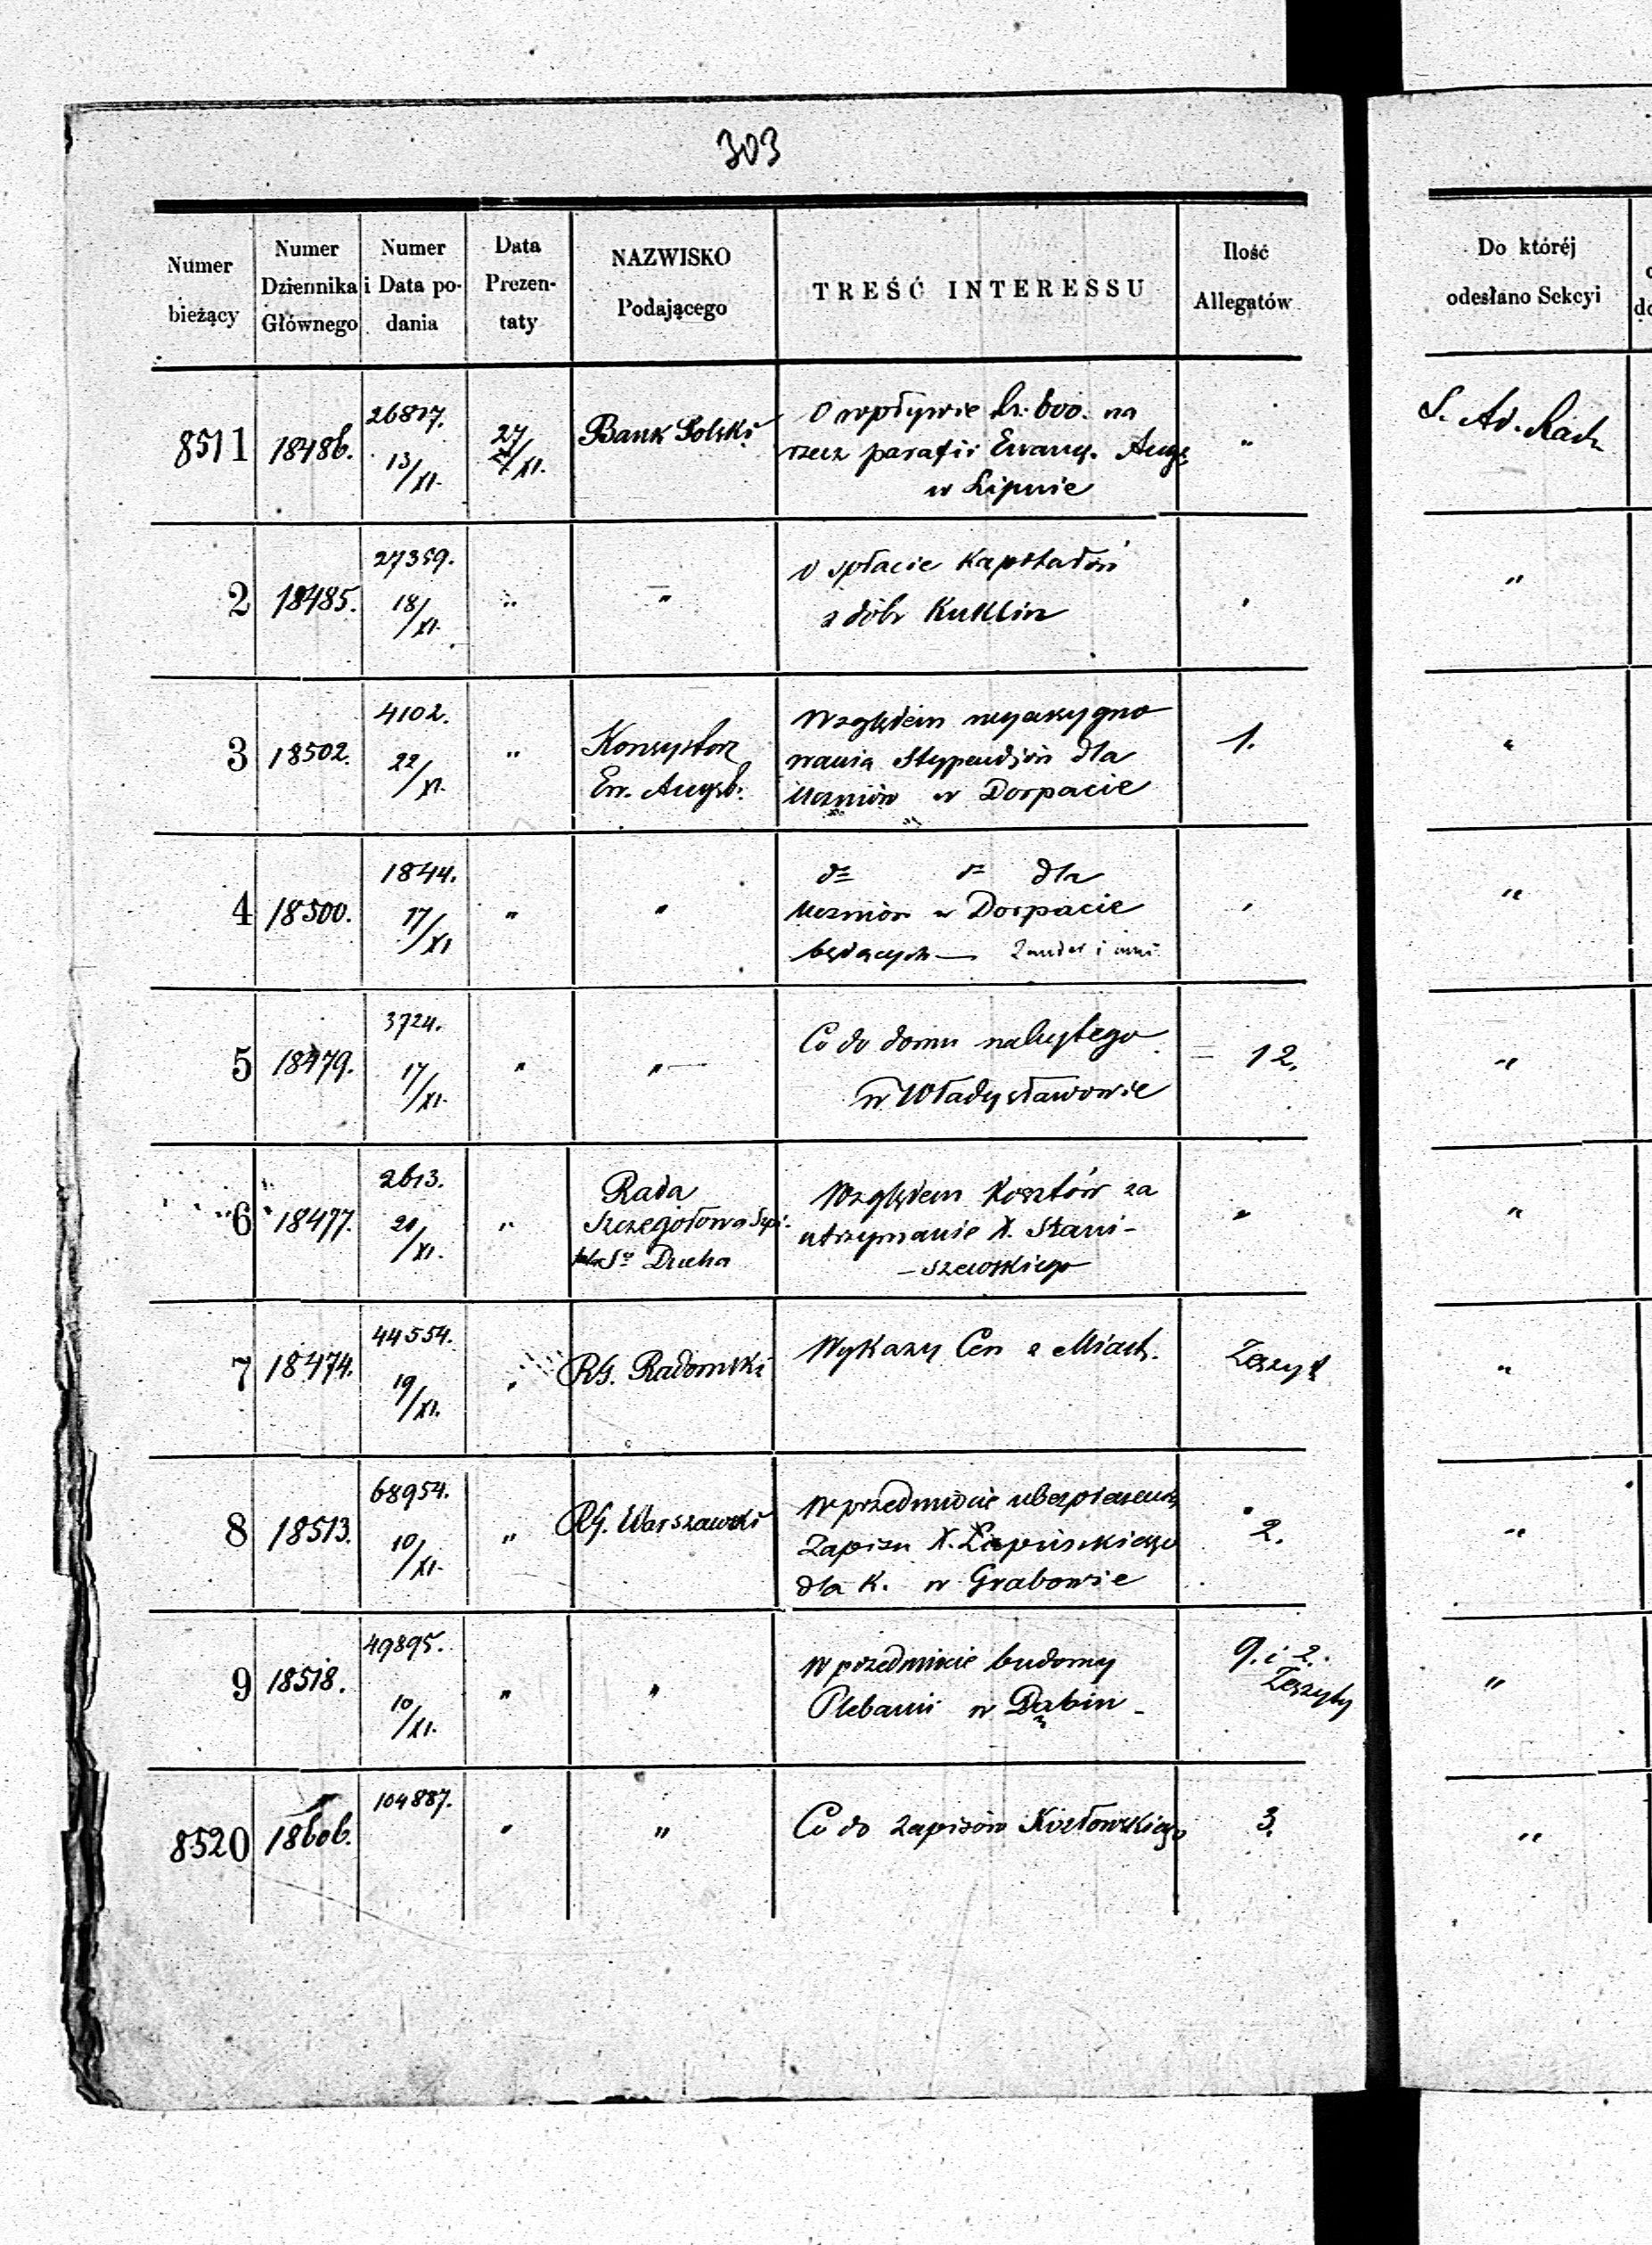 303
Numer bieżący
Numer Dziennika Głównego
Numer i Data podania
Data Prezentaty
NAZWISKO Podającego
TREŚĆ INTERESSU
Ilość Allegatów
Do któréj odesłano Sekcyi
8511 18486. 26817. 13/XI. 27/XI. Bank Polski O wpływie Rs. 600. na "
rzecz parafii Ewang. Augs.
w Lipnie
2 18485. 27359. 18/XI. " " O spłacie Kapitałów "
z dóbr Kuklin
3 18502. 4102. 22/XI. " Konsystorz Względem wyassygno 1. "
Ew. Augsb. wania Stypendiów dla
Uczniów w Dorpacie
4 18500. 1844. 17/XI " " do do dla " "
Uczniów w Dorpacie
będących — i inni
5 18479. 3724. 17/XI. " " Co do domu nabytego 12. "
w Władysławowie
6 18477. 2613. 21/XI. " Rada Względem Kosztów za " "
Szczegółowa Szpi- utrzymanie X. Stani-
tala Sgo Ducha - szewskiego
7 18474. 44554. 19/XI. " RG. Radomski Wykazy Cen z Miast. Zeszyt "
8 18513. 68954. 10/XI. " RG. Warszawski W przedmiocie ubezpieczenia 2. "
Zapisu X. Łapińskiego
dla K. w Grabowie
9 18518. 49895. 10/XI. " " W przedmiocie budowy 9. i 2. "
Plebanii w Dąbiu - Zeszyty
8520 18606. 104887. " " Co do Zapisów Kozłowskiego 3. "